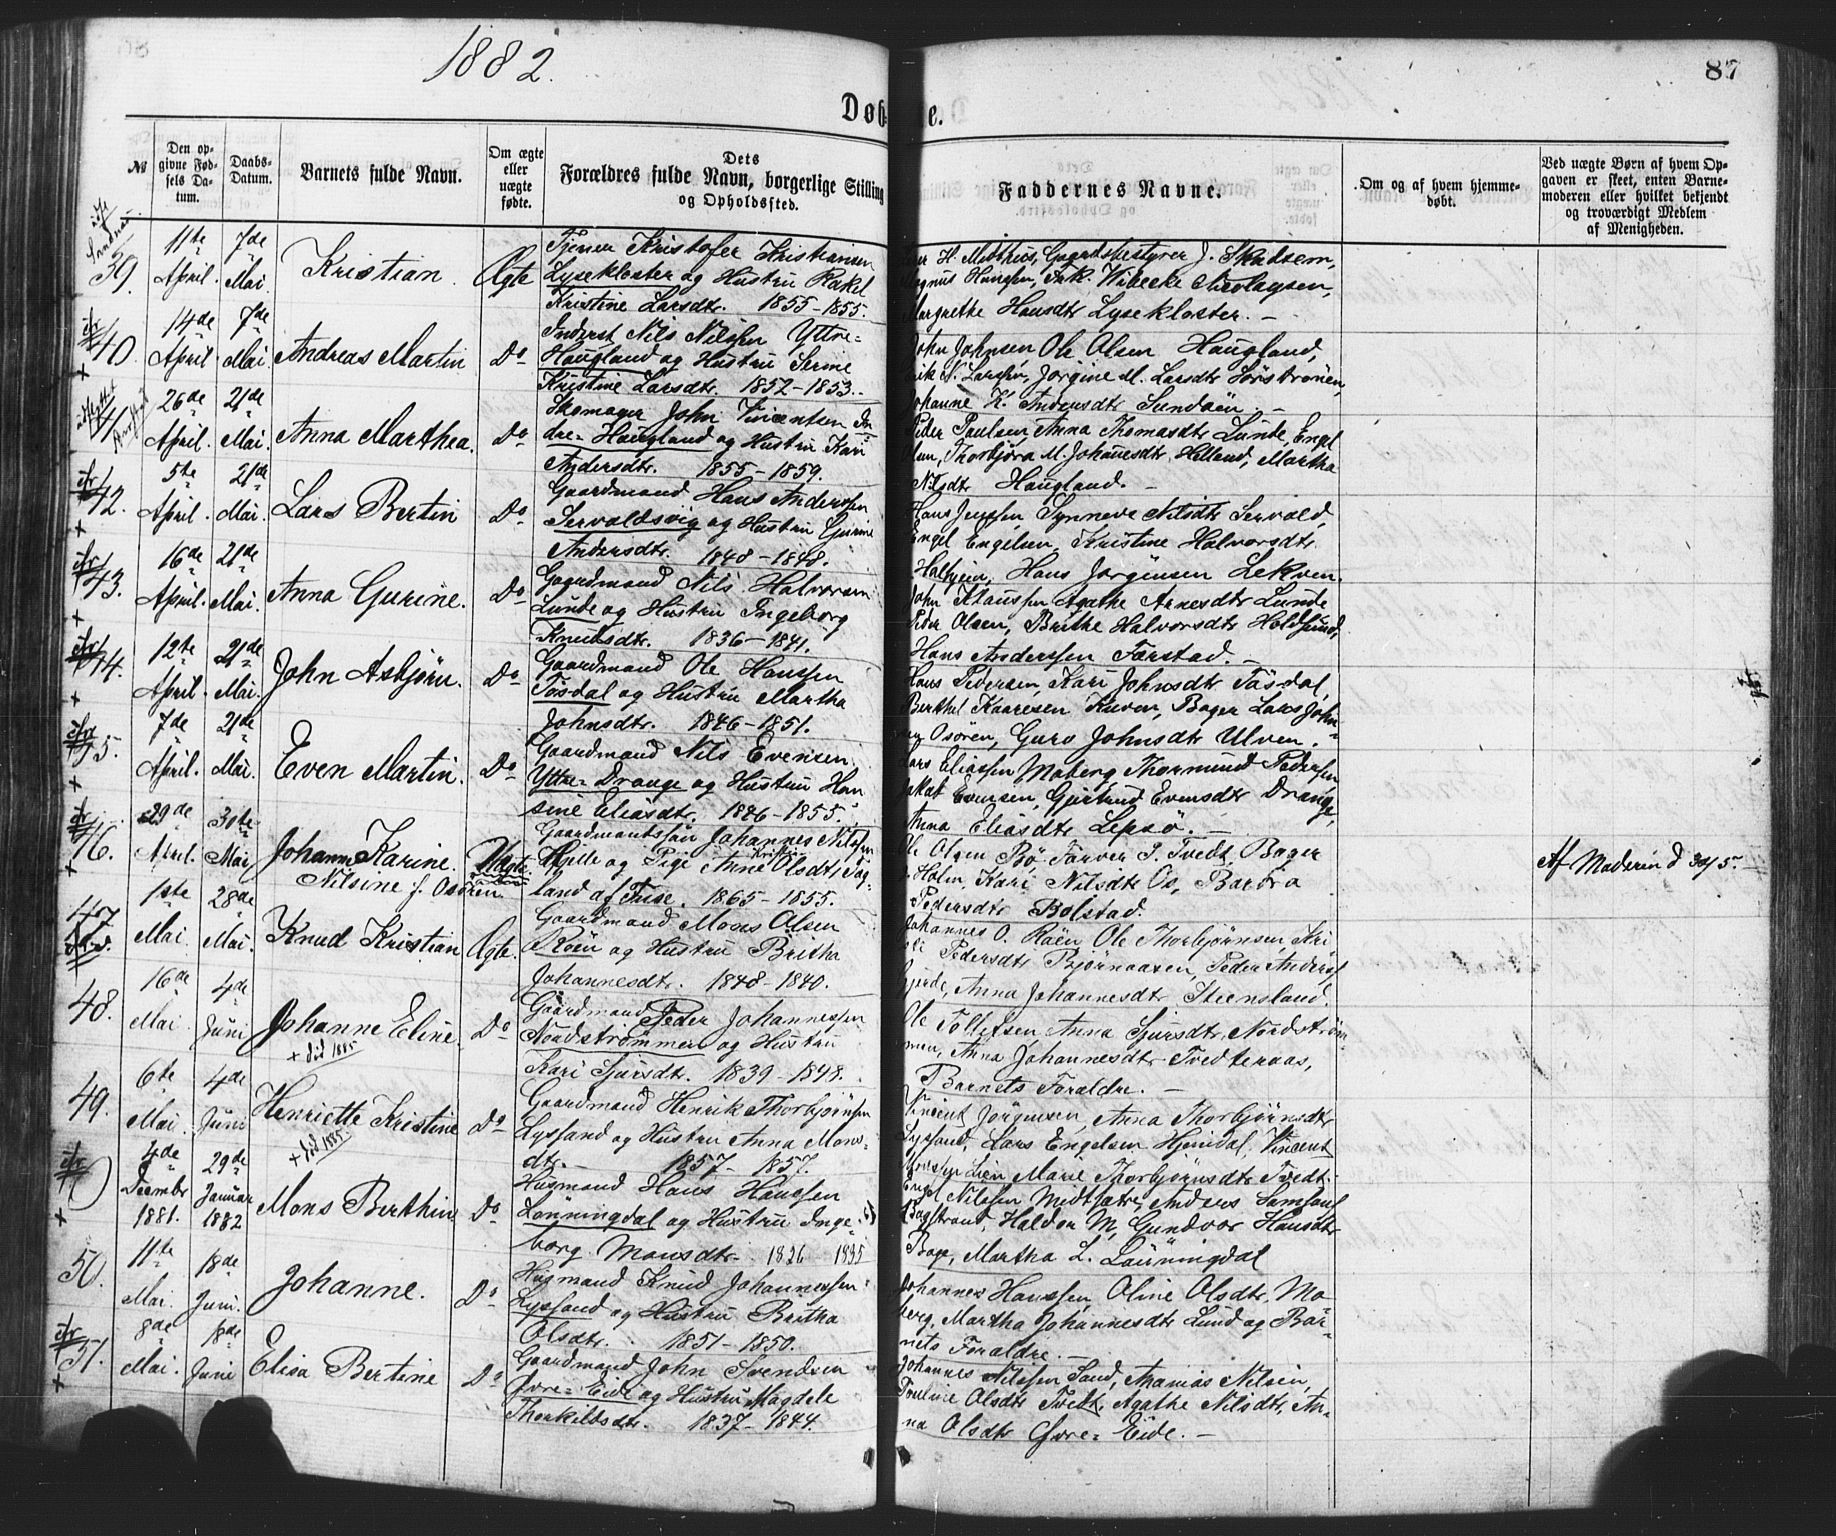 1882.
87
Døbte.
№
Den opgivne Fødsels Datum.
Daabs-Datum.
Barnets fulde Navn.
Om ægte eller uægte fødte.
Dets Forældres fulde Navn, borgerlige Stilling og Opholdssted.
Faddernes Navne.
Om og af hvem hjemmedøbt.
Ved uægte Børn af hvem Opgaven er skeet, enten Barnemoderen eller hvilket bekjendt og troværdigt Medlem af Menigheden.
39. 11te April. 7de Mai. Kristian Ægte
Tjener Kristofer Kristiansen
Lysekloster og Hustru Rakel
Kristine Larsdtr. 1855-1855.
H. Midthus, Gaardsbestyrer J. Skadsem,
Magnus Hanssen, Frk. Wibecke Nicolaysen,
Margrethe Hansdtr Lysekloster. -
40. 14de April 7de Mai Andreas Martin Do
Inderst Nils Nilssen Yttre=
Haugland og Hustru Serine
Kristine Larsdtr. 1852-1853.
John Johnsen Ole Olsen Haugland,
Erik N. Larssen, Jorgine M. Larsdtr Sørstrønen,
Johanne K. Andersdtr Sundøen. -
41. 26de April. 21de Mai. Anna Marthea. Do
Skomager John Vincentsen In
dre= Haugland og Hustru Kari
Andersdtr. 1855-1859.
Peder Paulsen, Anna Thomasdtr Lunde, Engel
Olsen, Thorbjøra M. Johannesdtr Helland, Martha
Nilsdtr Haugland. -
42. 5te April. 21de Mai. Lars Bertin Do
Gaardmand Hans Anderssen
Servoldsvig og Hustru Gurine
Andersdtr. 1848-1848.
Hans Jenssen, Synneva Nilsdtr Servold,
Engel Engelsen, Kristine Halvorsdtr
Halhjem, Hans Jørgensen Lekven.
43. 16de April. 21de Mai. Anna Gurine. Do
Gaardmand Nils Halvorsen
Lunde og Hustru Ingeborg
Knudsdtr. 1836-1841.
John Klaussen, Agathe Arnesdtr Lunde
Peder Olsen, Brithe Halvorsdtr Holdsund,
Hans Anderssen Førstad. -
44. 12te April. 21de Mai. John Asbjørn. Do
Gaardmand Ole Hanssen
Tøsdal og Hustru Martha
Johnsdtr. 1846-1851.
Hans Pedersen, Kari Johnsdtr Tøsdal,
Berthel Kaaresen Kuven, Bager Lars John-
sen Osøren, Guro Johnsdtr Ulven.
45. 7de April. 21de Mai. Even Martin. Do
Gaardmand Nils Evensen
Yttre= Drange og Hustru Han
sine Eliasdtr. 1846-1855.
Lars Eliassen Moberg, Thormund Pedersen,
Jakob Evensen, Gjertrud Evensdtr Drange,
Anna Eliasdtr Lepsø. -
46. 29de April. 30te Mai Johanne Karine Nilsine f. Osøren. Uægte
Gaardmandssøn Johannes Nilssen
Hjelle og Pige Anne Kristi Olsdtr Tøg-
land af Fuse. 1865-1855.
Ole Olsen Bø, Farver P. Tvedt, Bager
Holm, Kari Nilsdtr Os, Barbra
Pedersdtr Bolstad.
Af Moderen d 30/5.
47. 1ste Mai. 28de Mai. Knud Kristian Ægte.
Gaardmand Mons Olsen
Røen og Hustru Britha
Johannesdtr. 1848-1840.
Johannes O. Røen, Ole Thorbjørnsen, Kri
Pedersdtr Bjørnaasen, Peder Anders
Gjerde, Anna Johannesdtr Steensland.
48. 16de Mai. 4de Juni Johanne Eline. Do
+ død 1885
Gaardmand Peder Johannessen
Nordstrømmen og Hustru
Kari Sjursdtr. 1839-1848.
Ole Tollefsen, Anna Sjursdtr Nordstrøm-
men, Anna Johannesdtr Tvedteraas,
Barnets Forældre. -
49. 6te Mai. 4de Juni Henriette Kristine Do
+ død 1885.
Gaardmand Henrik Thorbjørnsen
Lyssand og Hustru Anna Mons-
dtr. 1857-1857.
Vincent Jørgensen, Anna Thorbjørnsdtr
Lyssand, Lars Engelsen Hjemdal, Vincent
Monssen Lien Marie Thorbjørnsdtr Tvedt.
4de December 1881. 29de Januar 1882 Mons Berthin Do
Husmand Hans Hanssen
Lønningdal og Hustru Inge-
borg Monsdtr. 1826 1835
Engel Nilssen Midtsætre, Anders Samsons
Bagstrand, Haldor M, Gundvor Hansdtr
Boge, Martha L. Lønningdal
50. 11te Mai. 18de Juni. Johanne. Do
Husmand Knud Johannessen
Lyssand og Hustru Britha
Olsdtr. 1851-1850.
Johannes Hanssen, Oline Olsdtr, Mo
berg, Martha Johannesdtr Lund og Bar-
nets Forældre. -
51. 8de Mai. 18de Juni Elisa Bertine Do
Gaardmand John Svendsen
Øvre= Eide og Hustru Magdele
Thorkildsdtr. 1837-1844.
Johannes Nilssen Sand, Ananias Nilsen,
Pauline Olsdtr Tvedt, Agathe Nilsdtr, An-
na Olsdtr Øvre= Eide. -